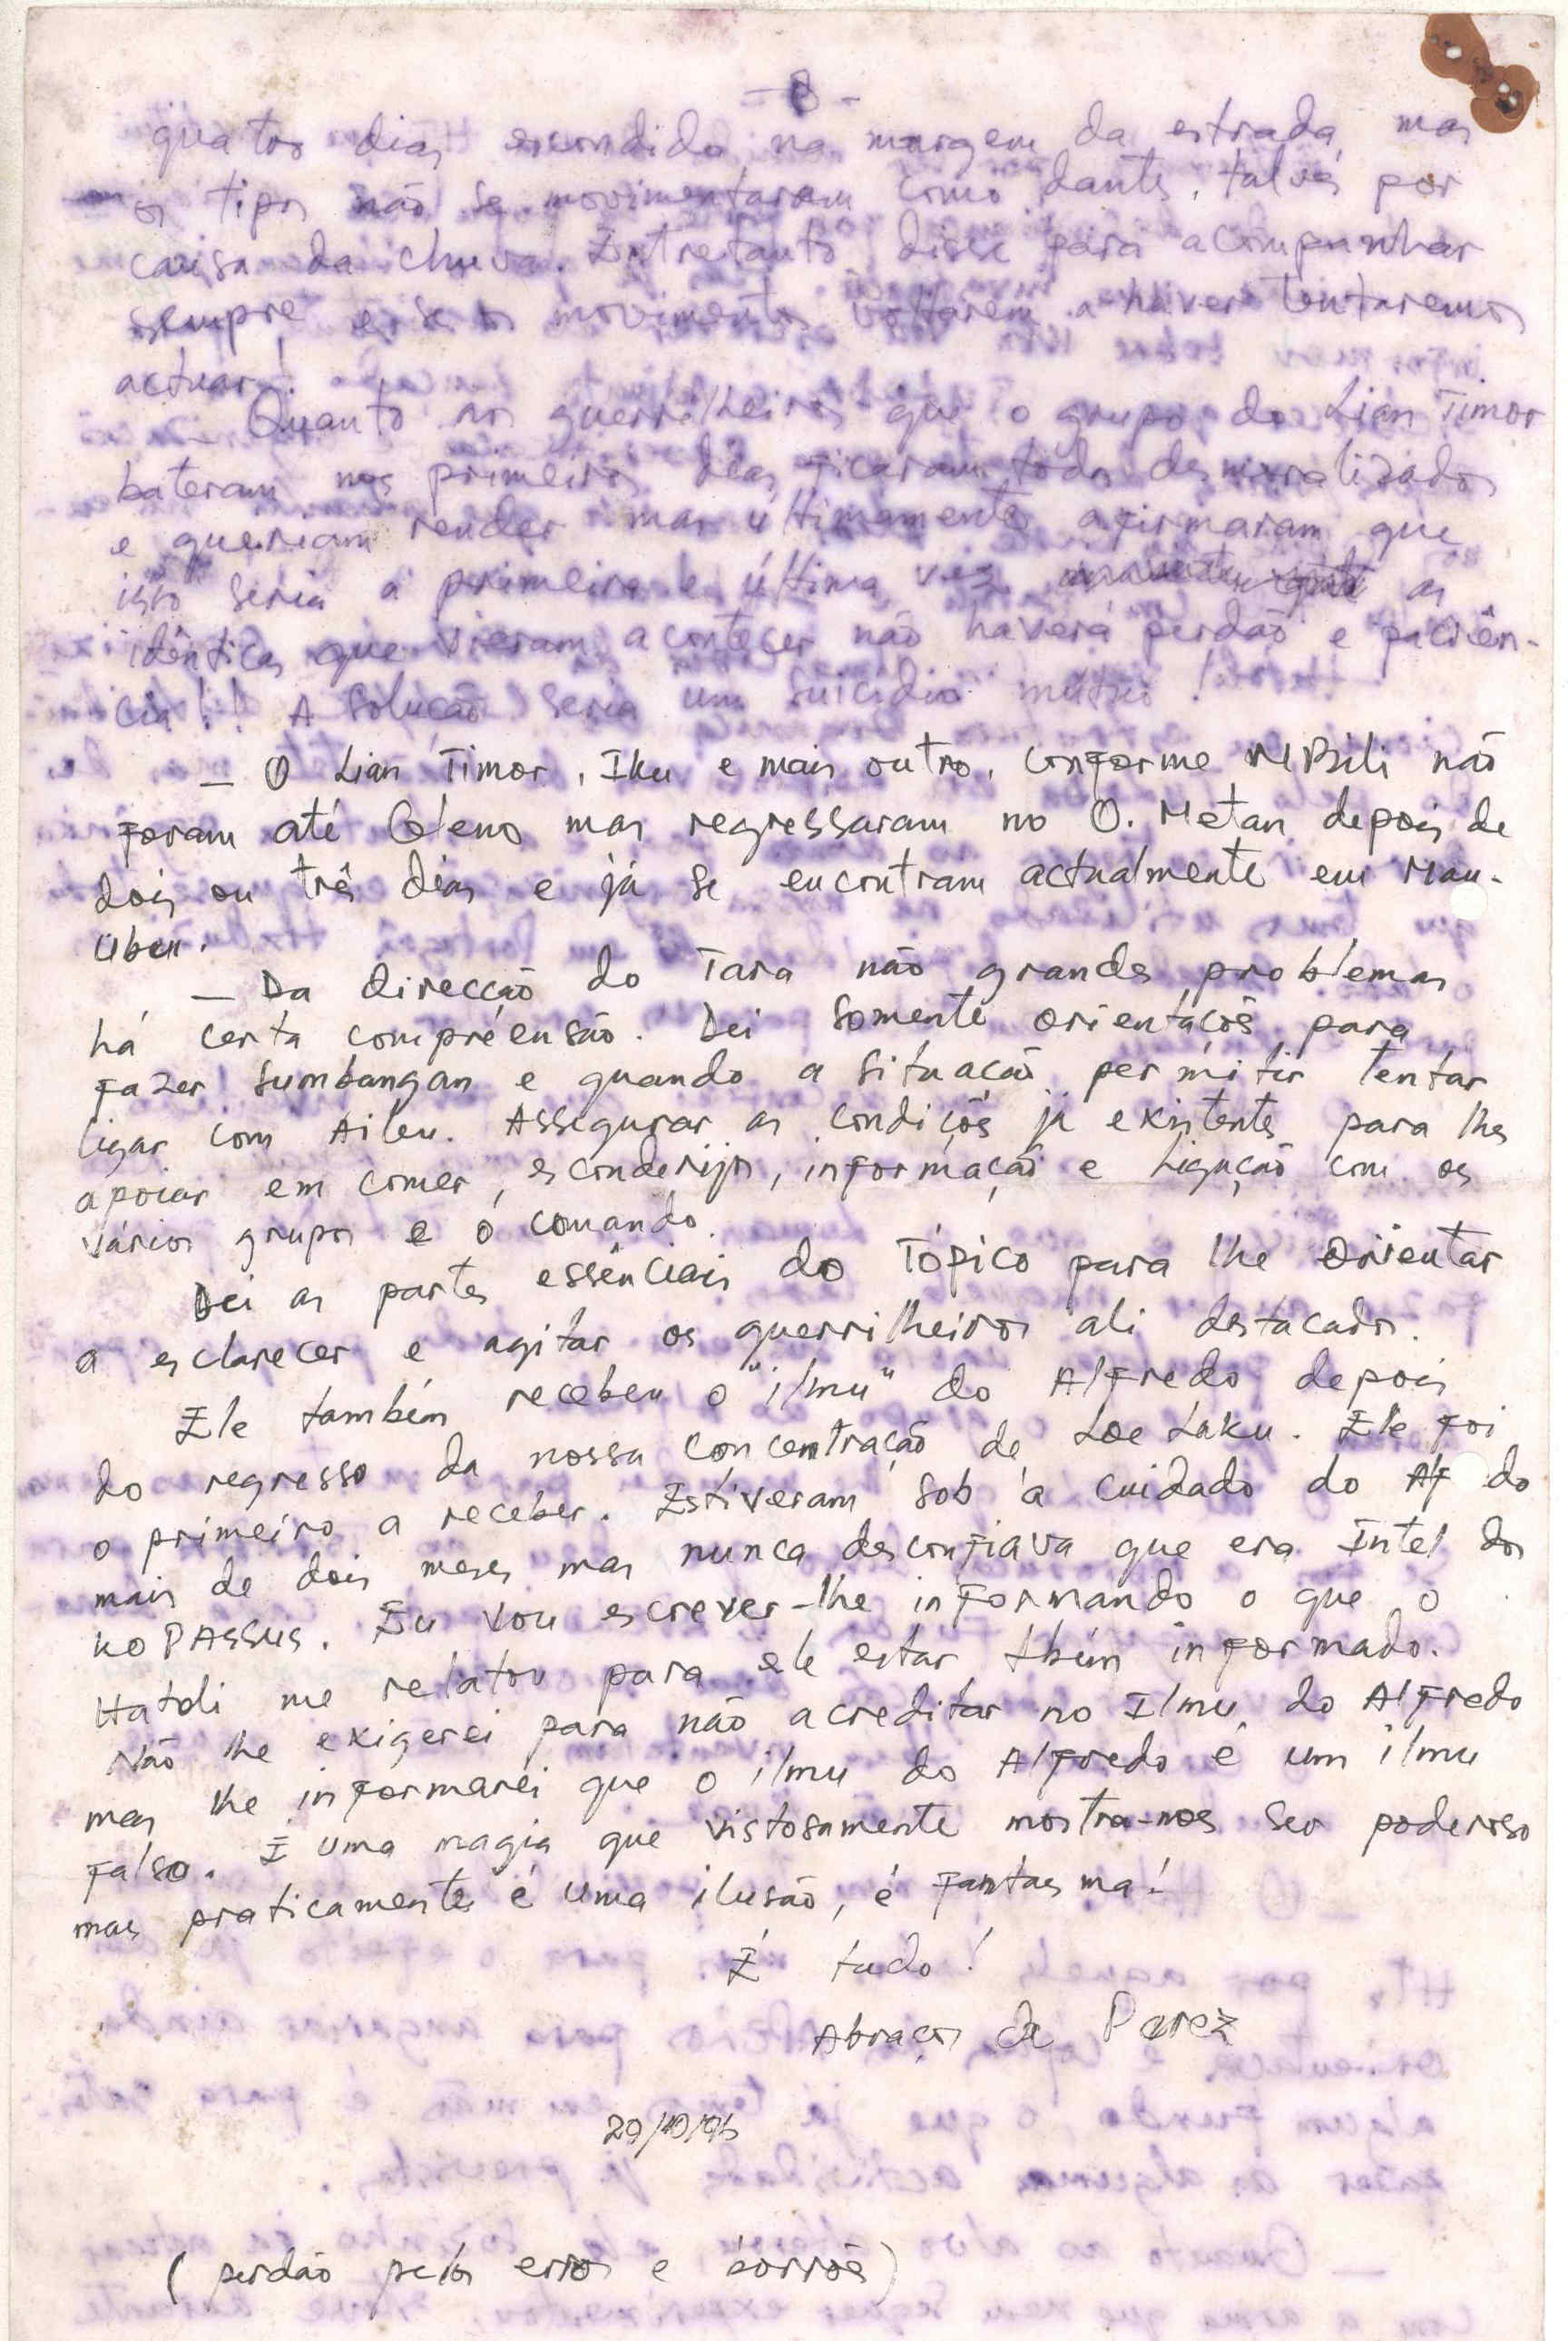 - 8 -
quatro dias escondido na margem da estrada, mas
os tipos não se movimentaram como dantes, talvés por
causa da chuva. Entretanto disse para acompanhar
sempre e se os movimentos voltarem a haver tentaremos
actuar!
Quanto aos guerrilheiros que o grupo do Lian Timor
bateram nos primeiros dias ficaram todos desmoralizados
e queriam render mas últimamente afirmaram que
isto seria a primeira e última vez as
idênticas que vieram acontecer não haverá perdão e paciên-
cia!! A solução seria um suicídio mútuo!
— O Lian Timor, Iku e mais outro, conforme MBili não
foram até Gleno mas regressaram no O. Metan depois de
dois ou três dias e já se encontram actualmente em Mau-
Ubu.
— Da direcção do Tara não grandes problemas
há certa compreensão. Dei somente orientaçõs para
fazer sumbangan e quando a situação permitir tentar
ligar com Aileu. Assegurar as condiçõs já existentes para lhes
apoiar em comer, esconderijos, informação e ligação com os
vários grupos e o comando.
Dei as partes essênciais do Tópico para lhe orientar
a esclarecer e agitar os guerrilheiros ali destacados.
Ele também recebeu o "ilmu" do Alfredo depois
do regresso da nossa concentração de Loe Laku. Ele foi
o primeiro a receber. Estiveram sob a cuidado do Af do
mais de dois meses mas nunca desconfiava que era Intel dos
KOPASSUS. Eu vou escrever-lhe informando o que o
Hatdi me relatou para ele estar tbém informado.
Não lhe exigerei para não acreditar no Ilmu do Alfredo
mas lhe informarei que o ilmu do Alfredo é um ilmu
falso. É uma magia que vistosamente mostra-nos ser poderoso
mas praticamente é uma ilusão, é fantasma!
É tudo!
Abraços de Perez
29/10/96
(perdão pelos erros e borrões)